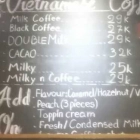 Vietnamese Cof
Milk Coffee 29k
Black Coffee 27k
DOUBLE Milk 29k
CACAO 32k
Milky 25k
Milky n Coffee 29k
Add
Flavour Caramel/Hazelnut/V
Peach (3 pieces)
Tappin cream
Fresh/Condensed Milk